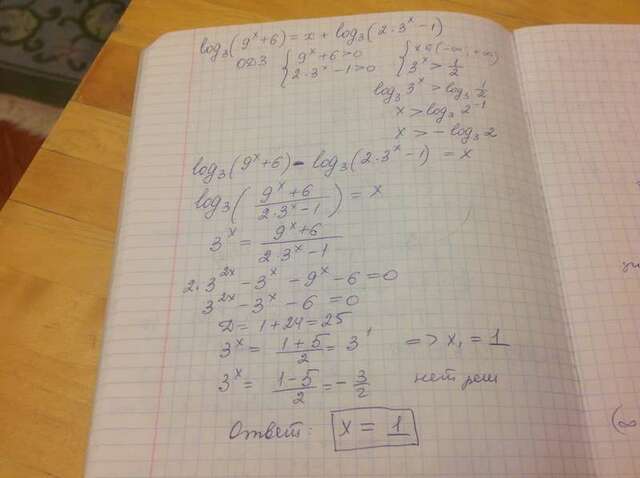 log₃(9ˣ+6) = x + log₃(2·3ˣ-1)
ОДЗ { 9ˣ+6>0 { x ∈ (-∞; +∞)
2·3ˣ-1>0 3ˣ > 1/2
log₃ 3ˣ > log₃ 1/2
x > log₃ 2⁻¹
x > - log₃ 2
log₃(9ˣ+6) - log₃(2·3ˣ-1) = x
log₃( (9ˣ+6)/(2·3ˣ-1) ) = x
3ˣ = (9ˣ+6)/(2·3ˣ-1)
2·3²ˣ - 3ˣ - 9ˣ - 6 = 0
3²ˣ - 3ˣ - 6 = 0
D = 1+24 = 25
3ˣ = (1+5)/2 = 3¹ => x₁ = 1
3ˣ = (1-5)/2 = - 3/2 нет реш
Ответ: x = 1
(∞